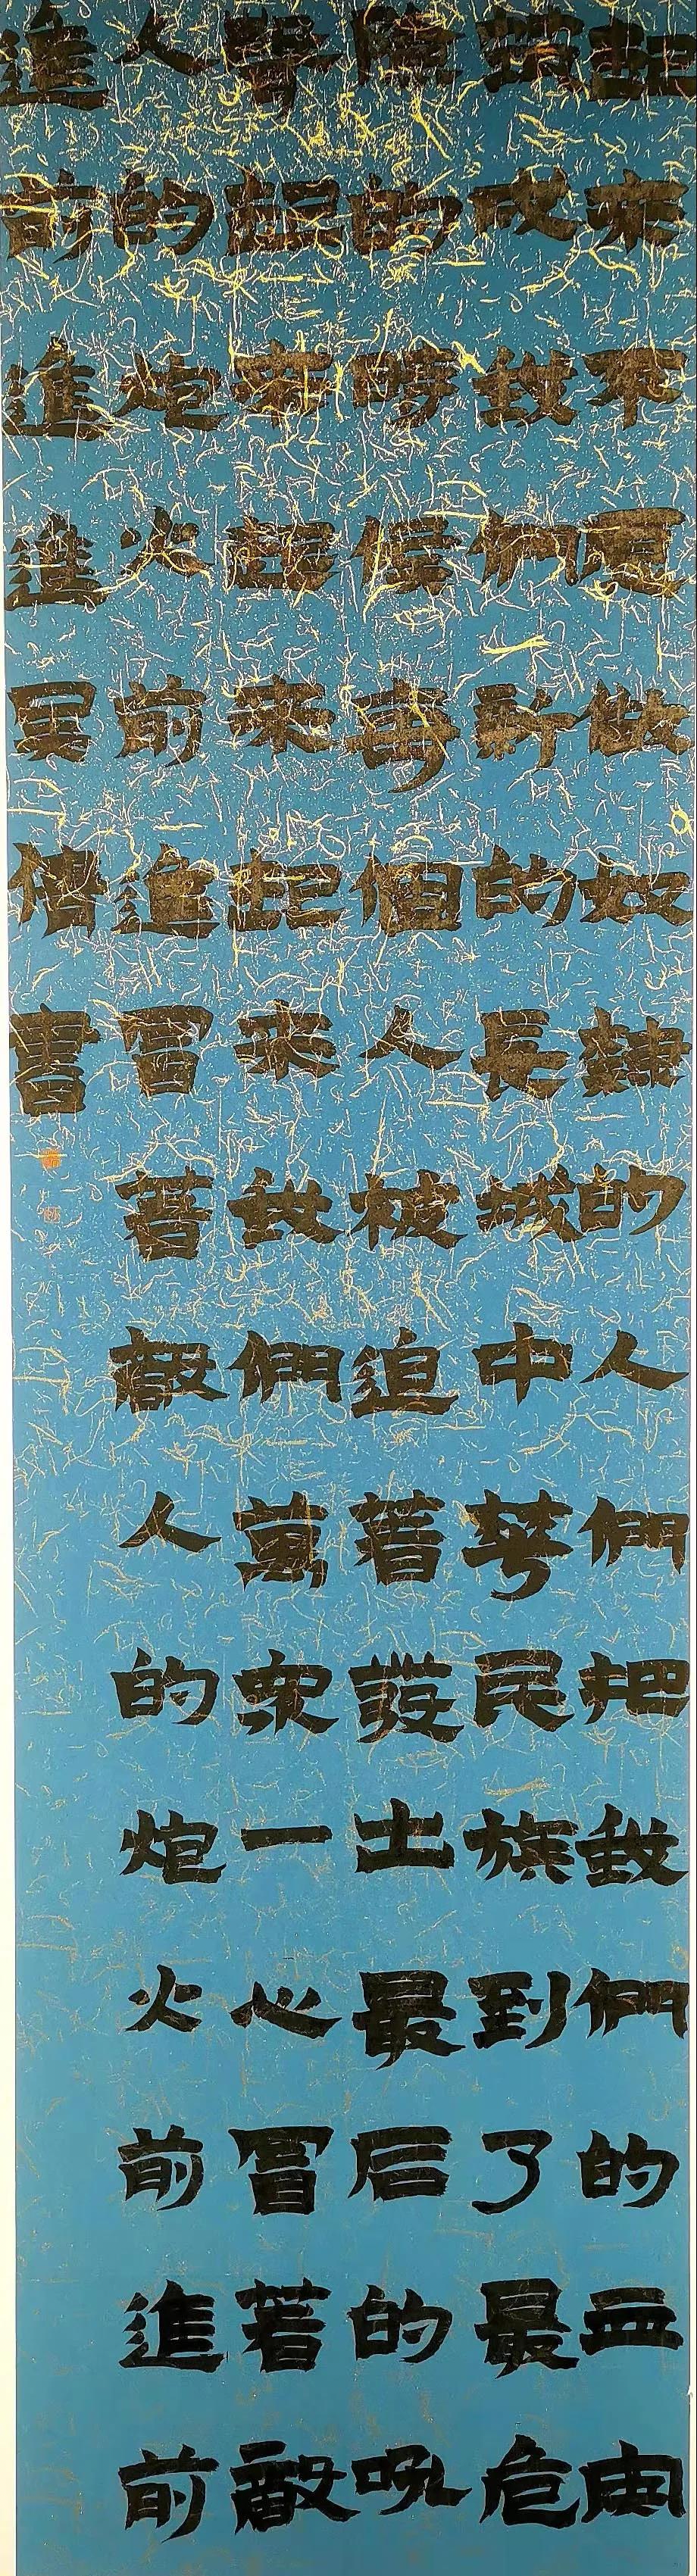 起來不愿做奴隸的人們把我們的血肉
築成我們新的長城中華民族到了最危
險的時候每個人被迫着發出最后的吼
聲起來起來起來我們萬眾一心冒着敵
人的炮火前進冒着敵人的炮火前進前
進前進進書